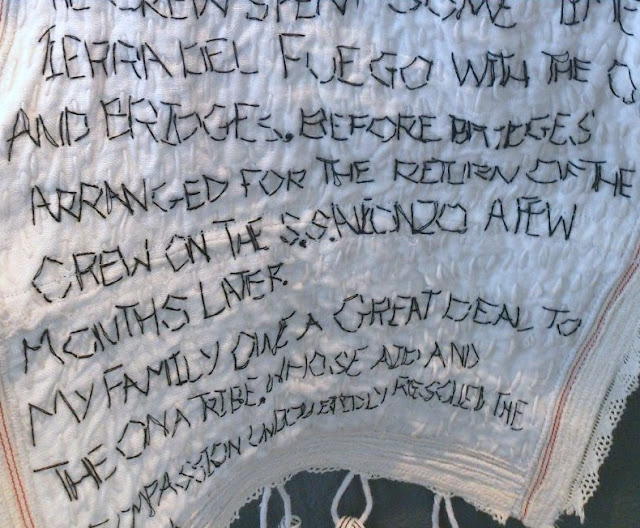 THE CREW SPENT SOME
TIERRA DEL FUEGO WITH THE O
AND BRIDGES. BEFORE BRIDGES
ARRANGED FOR THE RETURN OF THE
CREW ON THE S.S. AMONZO A FEW
MONTHS LATER.
MY FAMILY OWE A GREAT DEAL TO
THE ONA TRIBE, WHOSE AID AND
COMPASSION UNDOUBTEDLY RESCUED THE